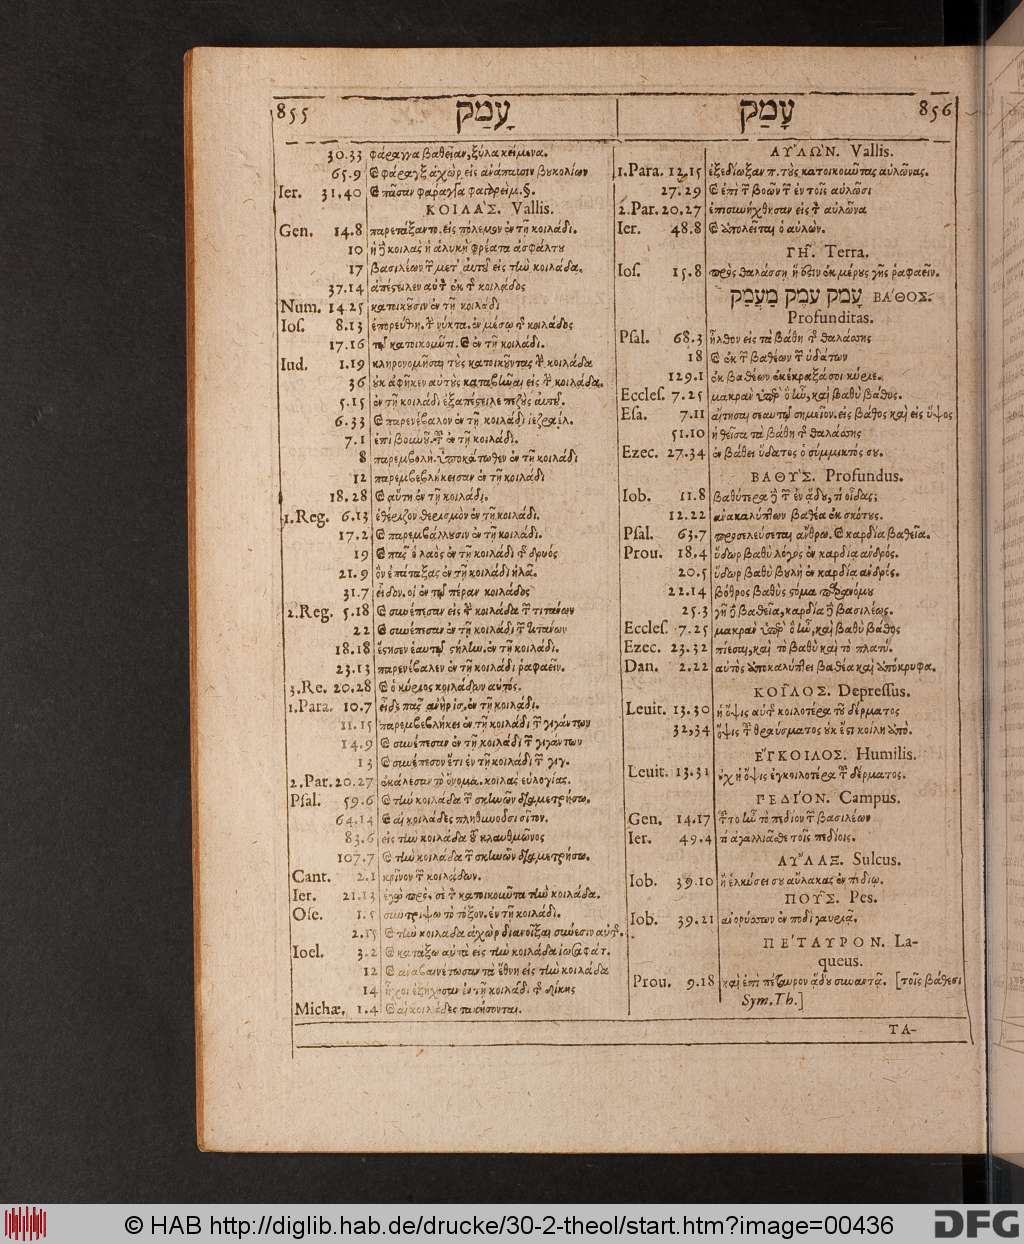 855 עָמַק
30.33 φάραγγα βαθεῖαν, ξύλα κείμενα.
65.9 φάραγξ ἀχὼρ εἰς ἀνάπαυσιν βουκολίων
Ier. 31.40
ΚΟΙΛΑ΄Σ. Vallis.
Gen. 14.8 εἰς πόλεμον ἐν τῇ κοιλάδι.
10 ἡ ἁλυκὴ φρέατα ἀσφάλτου
17 βασιλέων μετ' αὐτοῦ εἰς τὴν κοιλάδα.
37.14 ἀπέστειλεν κοιλάδος
Num. 14.25 κατοικοῦσιν ἐν τῇ κοιλάδι
Ios. 8.13 ἐπορεύθη. νύκτα. ἐν μέσῳ κοιλάδος
17.16 ἐν τῇ κοιλάδι.
Iud. 1.19 κληρονομῆσαι τοὺς κατοικοῦντας κοιλάδα
36 οὐκ ἀφῆκεν αὐτοὺς καταβῆναι εἰς κοιλάδα.
5.15 ἐν τῇ κοιλάδι ἐξαπέστειλε πεζοὺς αὐτοῦ.
6.33 παρενέβαλον ἐν τῇ κοιλάδι ἰεζραέλ.
7.1 ἐν τῇ κοιλάδι.
8 παρεμβολὴ. ὑποκάτωθεν ἐν τῇ κοιλάδι
12 παρεμβεβλήκεισαν ἐν τῇ κοιλάδι
18.28 αὕτη ἐν τῇ κοιλάδι.
1.Reg. 6.13 ἐθέριζον θερισμὸν ἐν τῇ κοιλάδι.
17.2 παρεμβάλλουσιν ἐν τῇ κοιλάδι.
19 ὁ λαὸς ἐν τῇ κοιλάδι δρυός
21.9 ὃν ἐπάταξας ἐν τῇ κοιλάδι ἠλᾶ.
31.7 εἶδον. οἱ ἐν τῷ πέραν κοιλάδος
2.Reg. 5.18 συνέπεσαν εἰς κοιλάδα τιτάνων
22 συνέπεσαν ἐν τῇ κοιλάδι τιτάνων
18.18 ἔστησεν ἑαυτῷ στήλην. ἐν τῇ κοιλάδι.
23.13 παρενέβαλεν ἐν τῇ κοιλάδι ῥαφαεῖν.
3.Re. 20.28 ὁ κύριος κοιλάδων αὐτός.
1.Para. 10.7 ἐν τῇ κοιλάδι.
11.15 παρεμβεβλήκει ἐν τῇ κοιλάδι γιγάντων
14.9 συνέπεσαν ἐν τῇ κοιλάδι γιγάντων
13 συνέπεσον ἔτι ἐν τῇ κοιλάδι γιγ.
2.Par. 20.27 ἐκάλεσαν τὸ ὄνομα. κοιλὰς εὐλογίας.
Psal. 59.6 τὴν κοιλάδα σκηνῶν διαμετρήσω.
64.14 αἱ κοιλάδες πληθυνοῦσι σῖτον.
83.6 εἰς τὴν κοιλάδα κλαυθμῶνος
107.7 τὴν κοιλάδα σκηνῶν διαμετρήσω.
Cant. 2.1 κρῖνον κοιλάδων.
Ier. 21.13 τὴν κοιλάδα.
Ose. 1.5 συντρίψω τὸ τόξον. ἐν τῇ κοιλάδι.
2.15 τὴν κοιλάδα ἀχὼρ διανοῖξαι σύνεσιν
Ioel. 3.2 κατάξω αὐτὰ εἰς τὴν κοιλάδα ἰωσαφάτ.
12 ἀναβαινέτωσαν τὰ ἔθνη εἰς τὴν κοιλάδα
14 ἦχοι ἐξήχησαν ἐν τῇ κοιλάδι δίκης
Michæ. 1.4 αἱ κοιλάδες τακήσονται.
עָמַק 856
ΑΥ᾿ΛΩ`Ν. Vallis.
1.Para. 12.15 ἐξεδίωξαν τοὺς κατοικοῦντας αὐλῶνας.
27.29 ἐπὶ βοῶν ἐν τοῖς αὐλῶσι
2.Par. 20.27 ἐπισυνήχθησαν εἰς αὐλῶνα
Ier. 48.8 ἀπολεῖται ὁ αὐλών.
ΓΗ~. Terra.
Ios. 15.8 πρὸς θαλάσσῃ ἥ ἐστιν ἐκ μέρους γῆς ῥαφαεῖν.
עֶמֶק עמק מַעֲמַק ΒΑ΄ΘΟΣ.
Profunditas.
Psal. 68.3 ἦλθον εἰς τὰ βάθη θαλάσσης
18 ἐκ βαθέων ὑδάτων
129.1 ἐκ βαθέων ἐκέκραξά σοι κύριε.
Eccles. 7.25 μακρὰν ὑπὲρ ὃ ἦν, καὶ βαθὺ βάθος.
Esa. 7.11 αἴτησαι σεαυτῷ σημεῖον. εἰς βάθος καὶ εἰς ὕψος
51.10 ἡ θεῖσα τὰ βάθη θαλάσσης
Ezec. 27.34 ἐν βάθει ὕδατος ὁ σύμμικτός σου.
ΒΑΘΥ΄Σ. Profundus.
Iob. 11.8 βαθύτερα ἐν ᾅδου, τί οἶδας;
12.22 ἀνακαλύπτων βαθέα ἐκ σκότους.
Psal. 63.7 προσελεύσεται ἄνθρω. καρδία βαθεῖα.
Prou. 18.4 ὕδωρ βαθὺ λόγος ἐν καρδίᾳ ἀνδρός.
20.5 ὕδωρ βαθὺ βουλὴ ἐν καρδίᾳ ἀνδρός.
22.14 βόθρος βαθὺς στόμα παρανόμου
25.3 γῆ βαθεῖα, καρδία βασιλέως.
Eccles. 7.25 μακρὰν ὑπὲρ ὃ ἦν, καὶ βαθὺ βάθος
Ezec. 23.32 πίεσαι, καὶ τὸ βαθὺ καὶ τὸ πλατύ.
Dan. 2.22 αὐτὸς ἀποκαλύπτει βαθέα καὶ ἀπόκρυφα.
ΚΟΙ~ΛΟΣ. Depressus.
Leuit. 13.30 ἡ ὄψις κοιλοτέρα τοῦ δέρματος
32,34 ὄψις θραύσματος οὐκ ἔστι κοίλη ἀπὸ.
Ε῎ΓΚΟΙΛΟΣ. Humilis.
Leuit. 13.31 οὐχ ἡ ὄψις ἐγκοιλοτέρα δέρματος.
ΠΕΔΙ΄ΟΝ. Campus.
Gen. 14.17 τὸ πεδίον βασιλέων
Ier. 49.4 τί ἀγαλλιᾶσθε τοῖς πεδίοις.
ΑΥ῏ΛΑΞ. Sulcus.
Iob. 39.10 ἢ ἑλκύσει σου αὔλακας ἐν πεδίῳ.
ΠΟΥ~Σ. Pes.
Iob. 39.21 ἀνορύσσων ἐν ποδὶ γαυριᾷ.
ΠΕ΄ΤΑΥΡΟΝ. La-
queus.
Prou. 9.18 καὶ ἐπὶ πέταυρον ᾅδου συναντᾷ. [τοῖς βάθεσι
Sym. Th.]
ΤΑ-
© HAB http://diglib.hab.de/drucke/30-2-theol/start.htm?image=00436
DFG